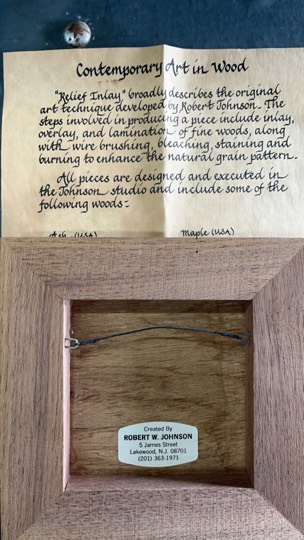 Contemporary Art in Wood
"Relief Inlay" broadly describes the original
art technique developed by Robert Johnson. The
steps involved in producing a piece include inlay,
overlay, and lamination of fine woods, along
with wire brushing, bleaching, staining and
burning to enhance the natural grain pattern.
All pieces are designed and executed in
the Johnson studio and include some of the
following woods:-
Ash (USA) Maple (USA)
Created By
ROBERT W. JOHNSON
5 James Street
Lakewood, N.J. 08701
(201) 363-1971